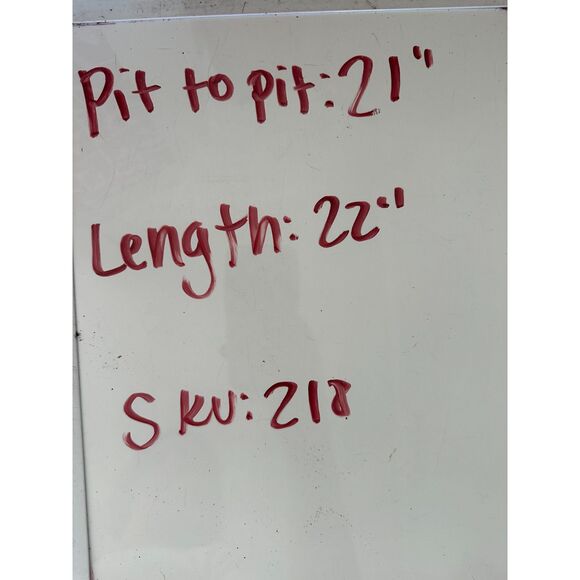 Pit to pit: 21"
Length: 22"
SKU: 218